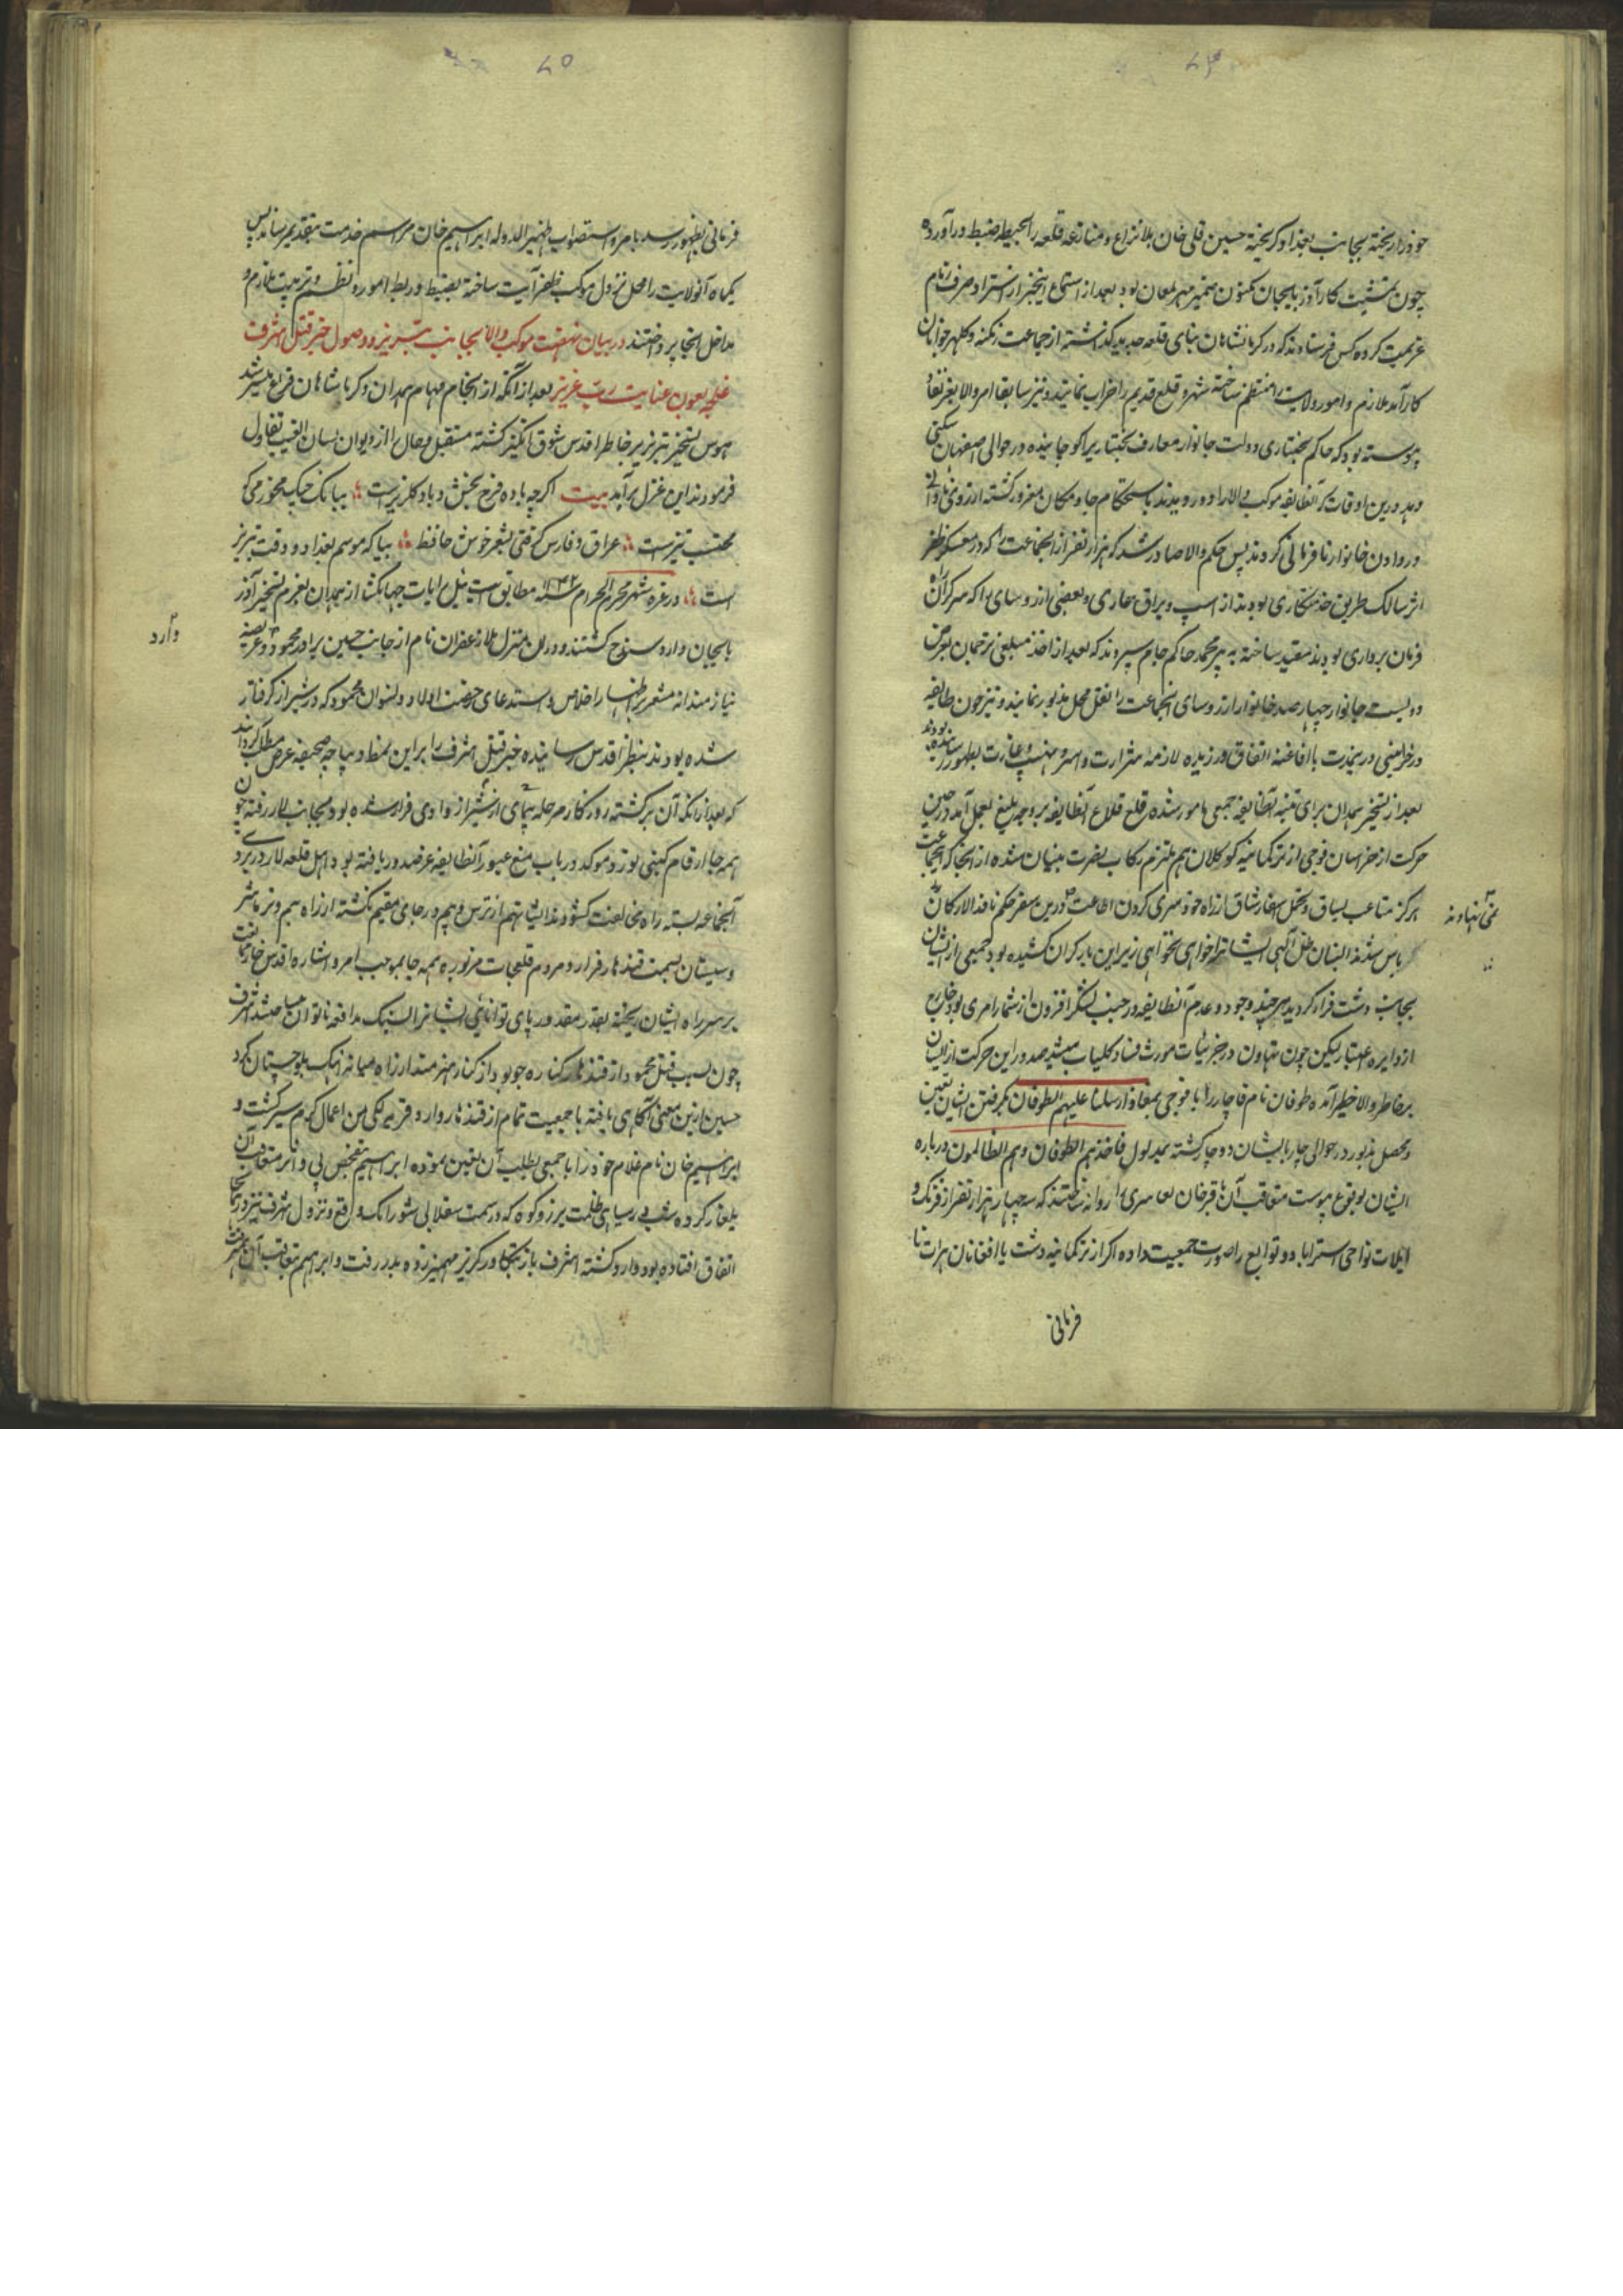 خود را ریخته بجانب بغداد گریخته حسین قلی خان بلا نزاع و منازعه قلعه را بحیطه ضبط درآورده
چون تمشیت کار آذربایجان مکنون ضمیر مهر لمعان بود بعد از استماع اینخبر از استرداد صرف زمام
عزیمت کرده کس فرستادند که در کرمانشاهان بنای قلعه جدید گذاشته از جماعت زنگنه و کلهر جوانان
کارآمد ملازم و امور ولایت را منتظم ساخته شهر و قلعه قدیم را خراب نمایند و نیز سابقا امر والا بعز نفاذ
پیوسته بود که حاکم بختیاری دویست خانوار معارف بختیاری را کوچانیده در حوالی اصفهان سکنی
دهد درین اوقات که آنطایفه موکب والا را دور دیدند باستحکام جا و مکان مغرور گشته از روی نادانی
در دادن خانوار نافرمانی کردند پس حکم والا صادر شد که هزار نفر از انجماعت را که در معسکر ظفر
اثر سالک طریق خدمتکاری بودند از اسپ و یراق عاری و بعضی از رؤسای را که سرکرده
فرمان برداری بودند مقید ساخته به پیر محمد حاکم جام سپردند که بعد از اخذ مبلغی ترجمان بعوض
دویست خانوار چهارصد خانوار از رؤسای انجماعت را نقل محل مذبور نمایند و نیز چون طایفه
درجزینی در بدایت با افاغنه اتفاق ورزیده لازمه شرارت و اسر و نهب و غارت بظهور رسانیده بودند
بعد از تسخیر همدان برای تنبیه آنطایفه جمعی مامور شده قلع قلاع آنطایفه بر وجه بلیغ بعمل آمد در حین
حرکت از خراسان فوجی از ترکمانیه کوکلان هم ملتزم رکاب نصرت بنیان شده از انجا که انجماعت
هرگز متاعب یساق و تحمل اسفار شاق از راه خودسری گردن اطاعت درین سفر حکم نافذ الارکان
باس شدید البنیان ظل آلهی ایشانرا خواهی نخواهی زیر این بار گران کشیده بود جمعی از ایشان
بجانب دشت فرار کردند هر چند وجود و عدم آنطایفه در جنب لشکر افزون از شمار امری بود خارج
از دایره اعتبار لیکن چون تهاون در جزئیات مورث فساد کلیات میشد صدور این حرکت از ایشان
بر خاطر والا خطیر آمده طوفان نام قاجار را با فوجی بمفاد ارسلنا علیهم الطوفان بگرفتن ایشان تعین
و محصل مذبور در حوالی چاربا بایشان دوچار گشته بمدلول فاخذهم الطوفان و هم الظالمون درباره
ایشان بوقوع پیوست متعاقب آن باقرخان بغاسری را روانه ساختند که سه چهار هزار نفر از قزلک و
ایلات نواحی استراباد و توابع را صورت جمعیت داده اگر از ترکمانیه دشت یا افغانان هرات نا
فرمانی
فرمانی بظهور رسد بامر و استصواب ظهیر الدوله ابراهیم خان مراسم خدمت بتقدیم رسانند پس
یکماه آنولایت را محل نزول موکب ظفر آیت ساخته بضبط و ربط امور و نظم و ترتیب ملازم و
مداخل انجا پرداختند در بیان نهضت موکب والا بجانب تبریز و وصول خبر قتل اشرف
غلجه بعون عنایت رب عزیز بعد از آنکه از انجام مهام همدان و کرمانشاهان فراغ میسر شد
هوس تسخیر تبریز بر خاطر اقدس شوق انگیز گشته مستقبل و حال را از دیوان لسان الغیب تفاول
فرمودند این غزل برآمد بیت اگر چه باده فرح بخش و باد گلریز است ببانگ چنگ مخور می که
محتسب تیز است عراق و فارس گرفتی بشعر خوش حافظ بیا که موسم بغداد و وقت تبریز
است در غره شهر محرم الحرام سنه ۱۱۴۲ مطابق ایت ئیل رایات جهانگشا از همدان بعزم تسخیر آذر
بایجان وارد سنوج گشتند و در ان منزل ملا زعفران نام از جانب حسین برادر محمود وارد و عریضه
نیازمندانه مشعر بر اظهار اخلاص و استدعای مرخصی اولاد و نسوان محمود که در شیراز گرفتار
شده بودند بنظر اقدس رسانیده خبر قتل اشرف را بر این نمط دیباچه صحیفه عرض مطلب گردانید
که بعد از آنکه آن برگشته روزگار مرحله پیمای از شیراز وادی فرار شده بود بجانب لار رفته چون
همه جا ارقام گیتی نورد موکد در باب منع عبور آنطایفه عز صدور یافته بود اهل قلعه لار در بروی
آنجماعه بسته راه مخالفت گشودند ایشانهم از ترس و بیم در جای مقیم نگشته از راه بم و نرماشیر
و سیستان بسمت قندهار فرار و مردم قلعجات مزبوره همه جا بموجب امر و اشاره اقدس
بر سر راه ایشان ریخته بقدر مقدور پای توانائی ایشانرا بسنک مدافعه ناتوان میساختند اشرف
چون بسبب قتل محمود از قندهار کناره جو بود از کنار هیرمند از راه میانه آهنک بلوچستان کرد
حسین از ین معنی آگاهی یافته با جمعیت تمام از قندهار وارد قریه لکی من اعمال گرمسیر گشت و
ابراهیم خان نام غلام خود را با جمعی بطلب آن تعین نموده ابراهیم تفحص پی و اثر متعاقب آن
یلغار کرده شب در سیاهی ظلمت بر زرد کوه که در سمت سفلای شورابک واقع و نزول اشرف نیز در انجا
اتفاق افتاده بود وارد گشته اشرف باز بتکاور گریز مهمیز زده بدر رفت و ابراهیم بتعاقب آن